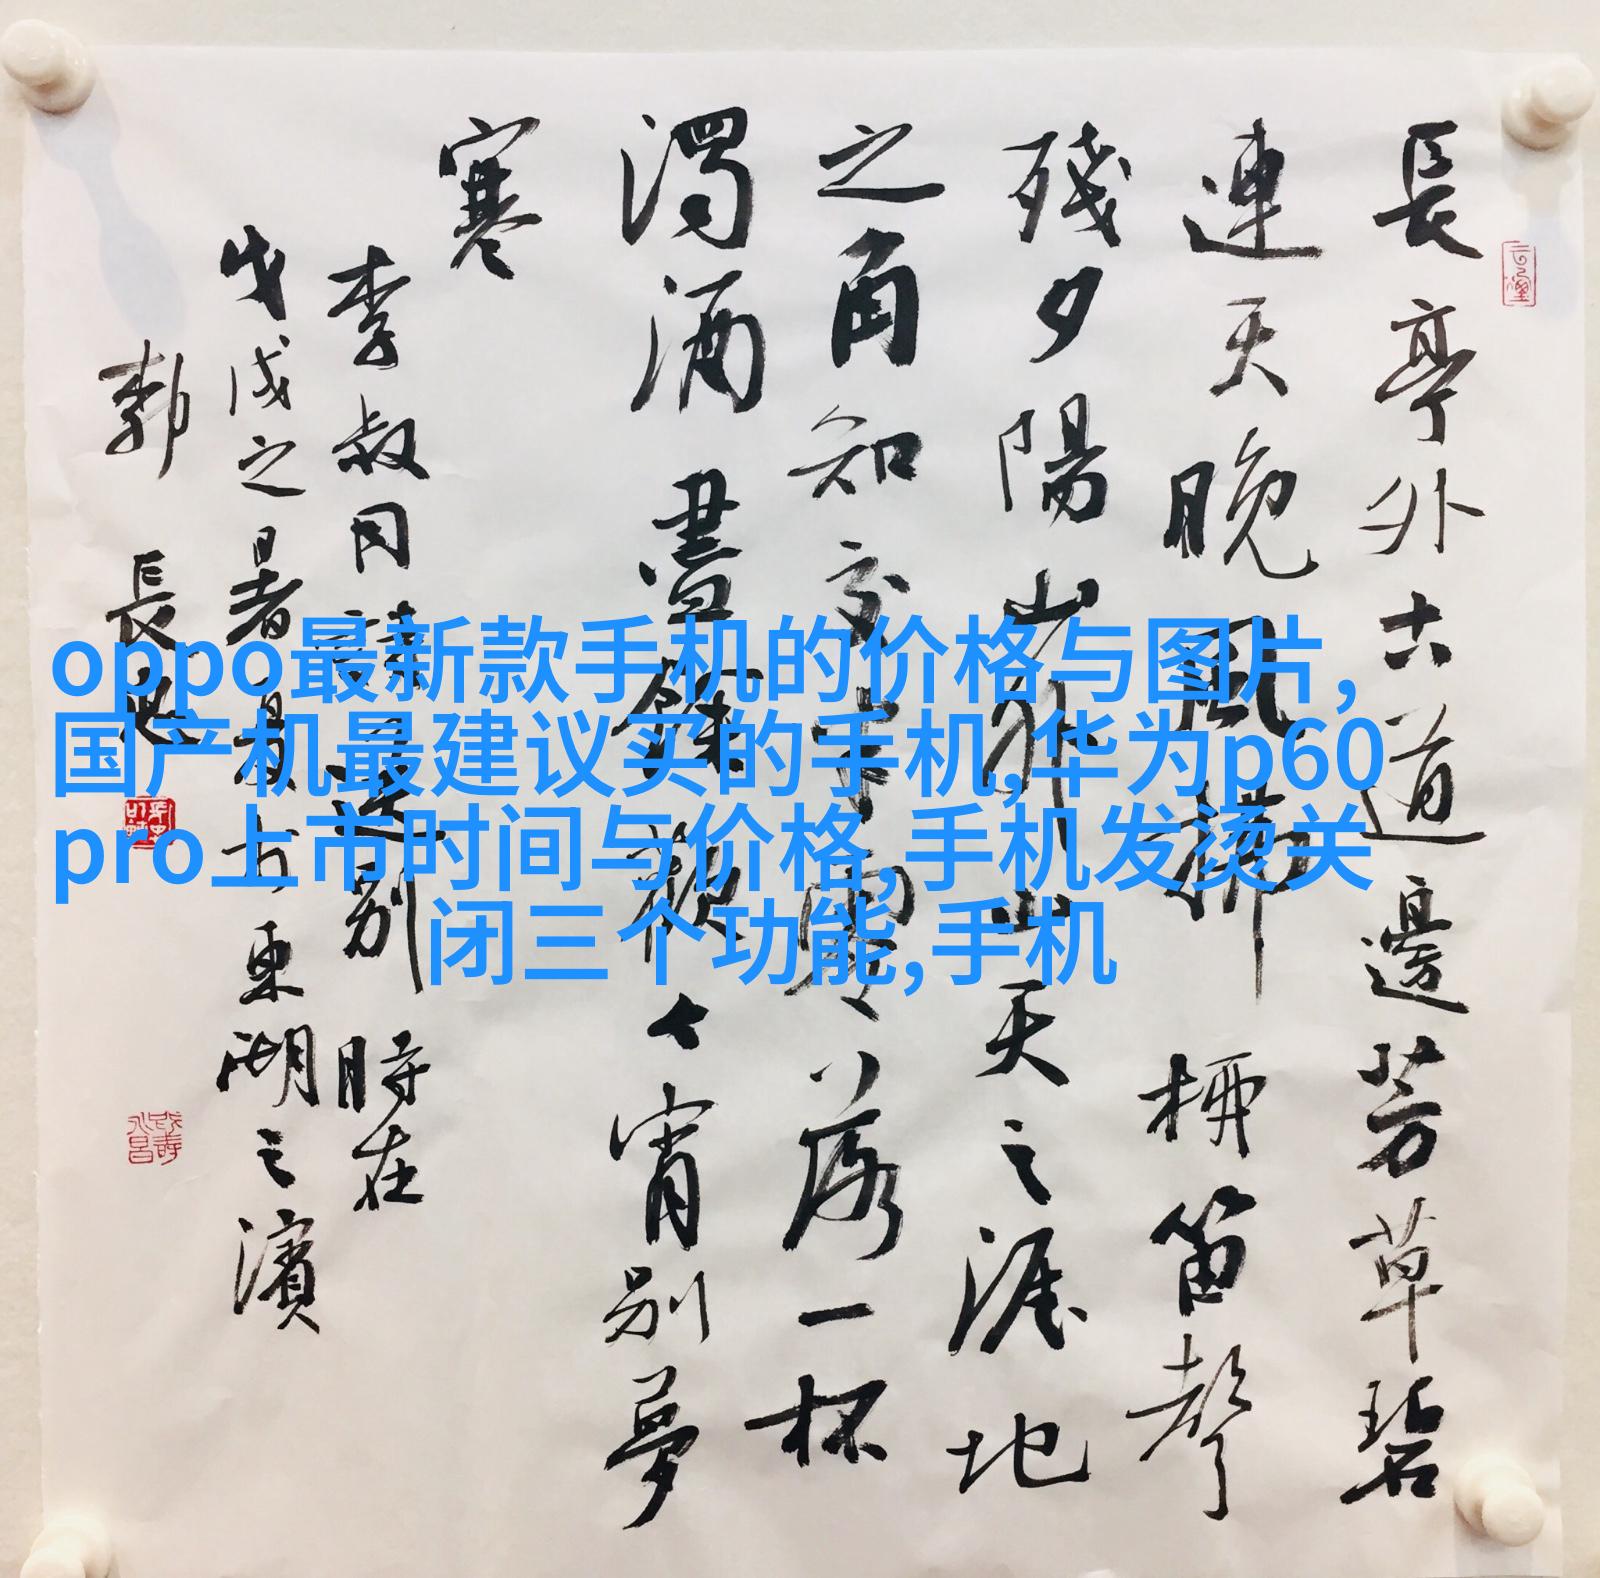 長亭外古道邊芳草碧
連天晚風拂柳笛聲
殘夕陽山外山天之涯地
之角知交半零落一杯
濁酒盡餘歡今宵別夢
寒
李叔同詩送別 時在
戊戌之暑 於東湖之濱
郭長
oppo最新款手机的价格与图片,
国产机最建议买的手机,华为p60
pro上市时间与价格,手机发烫关
闭三个功能,手机